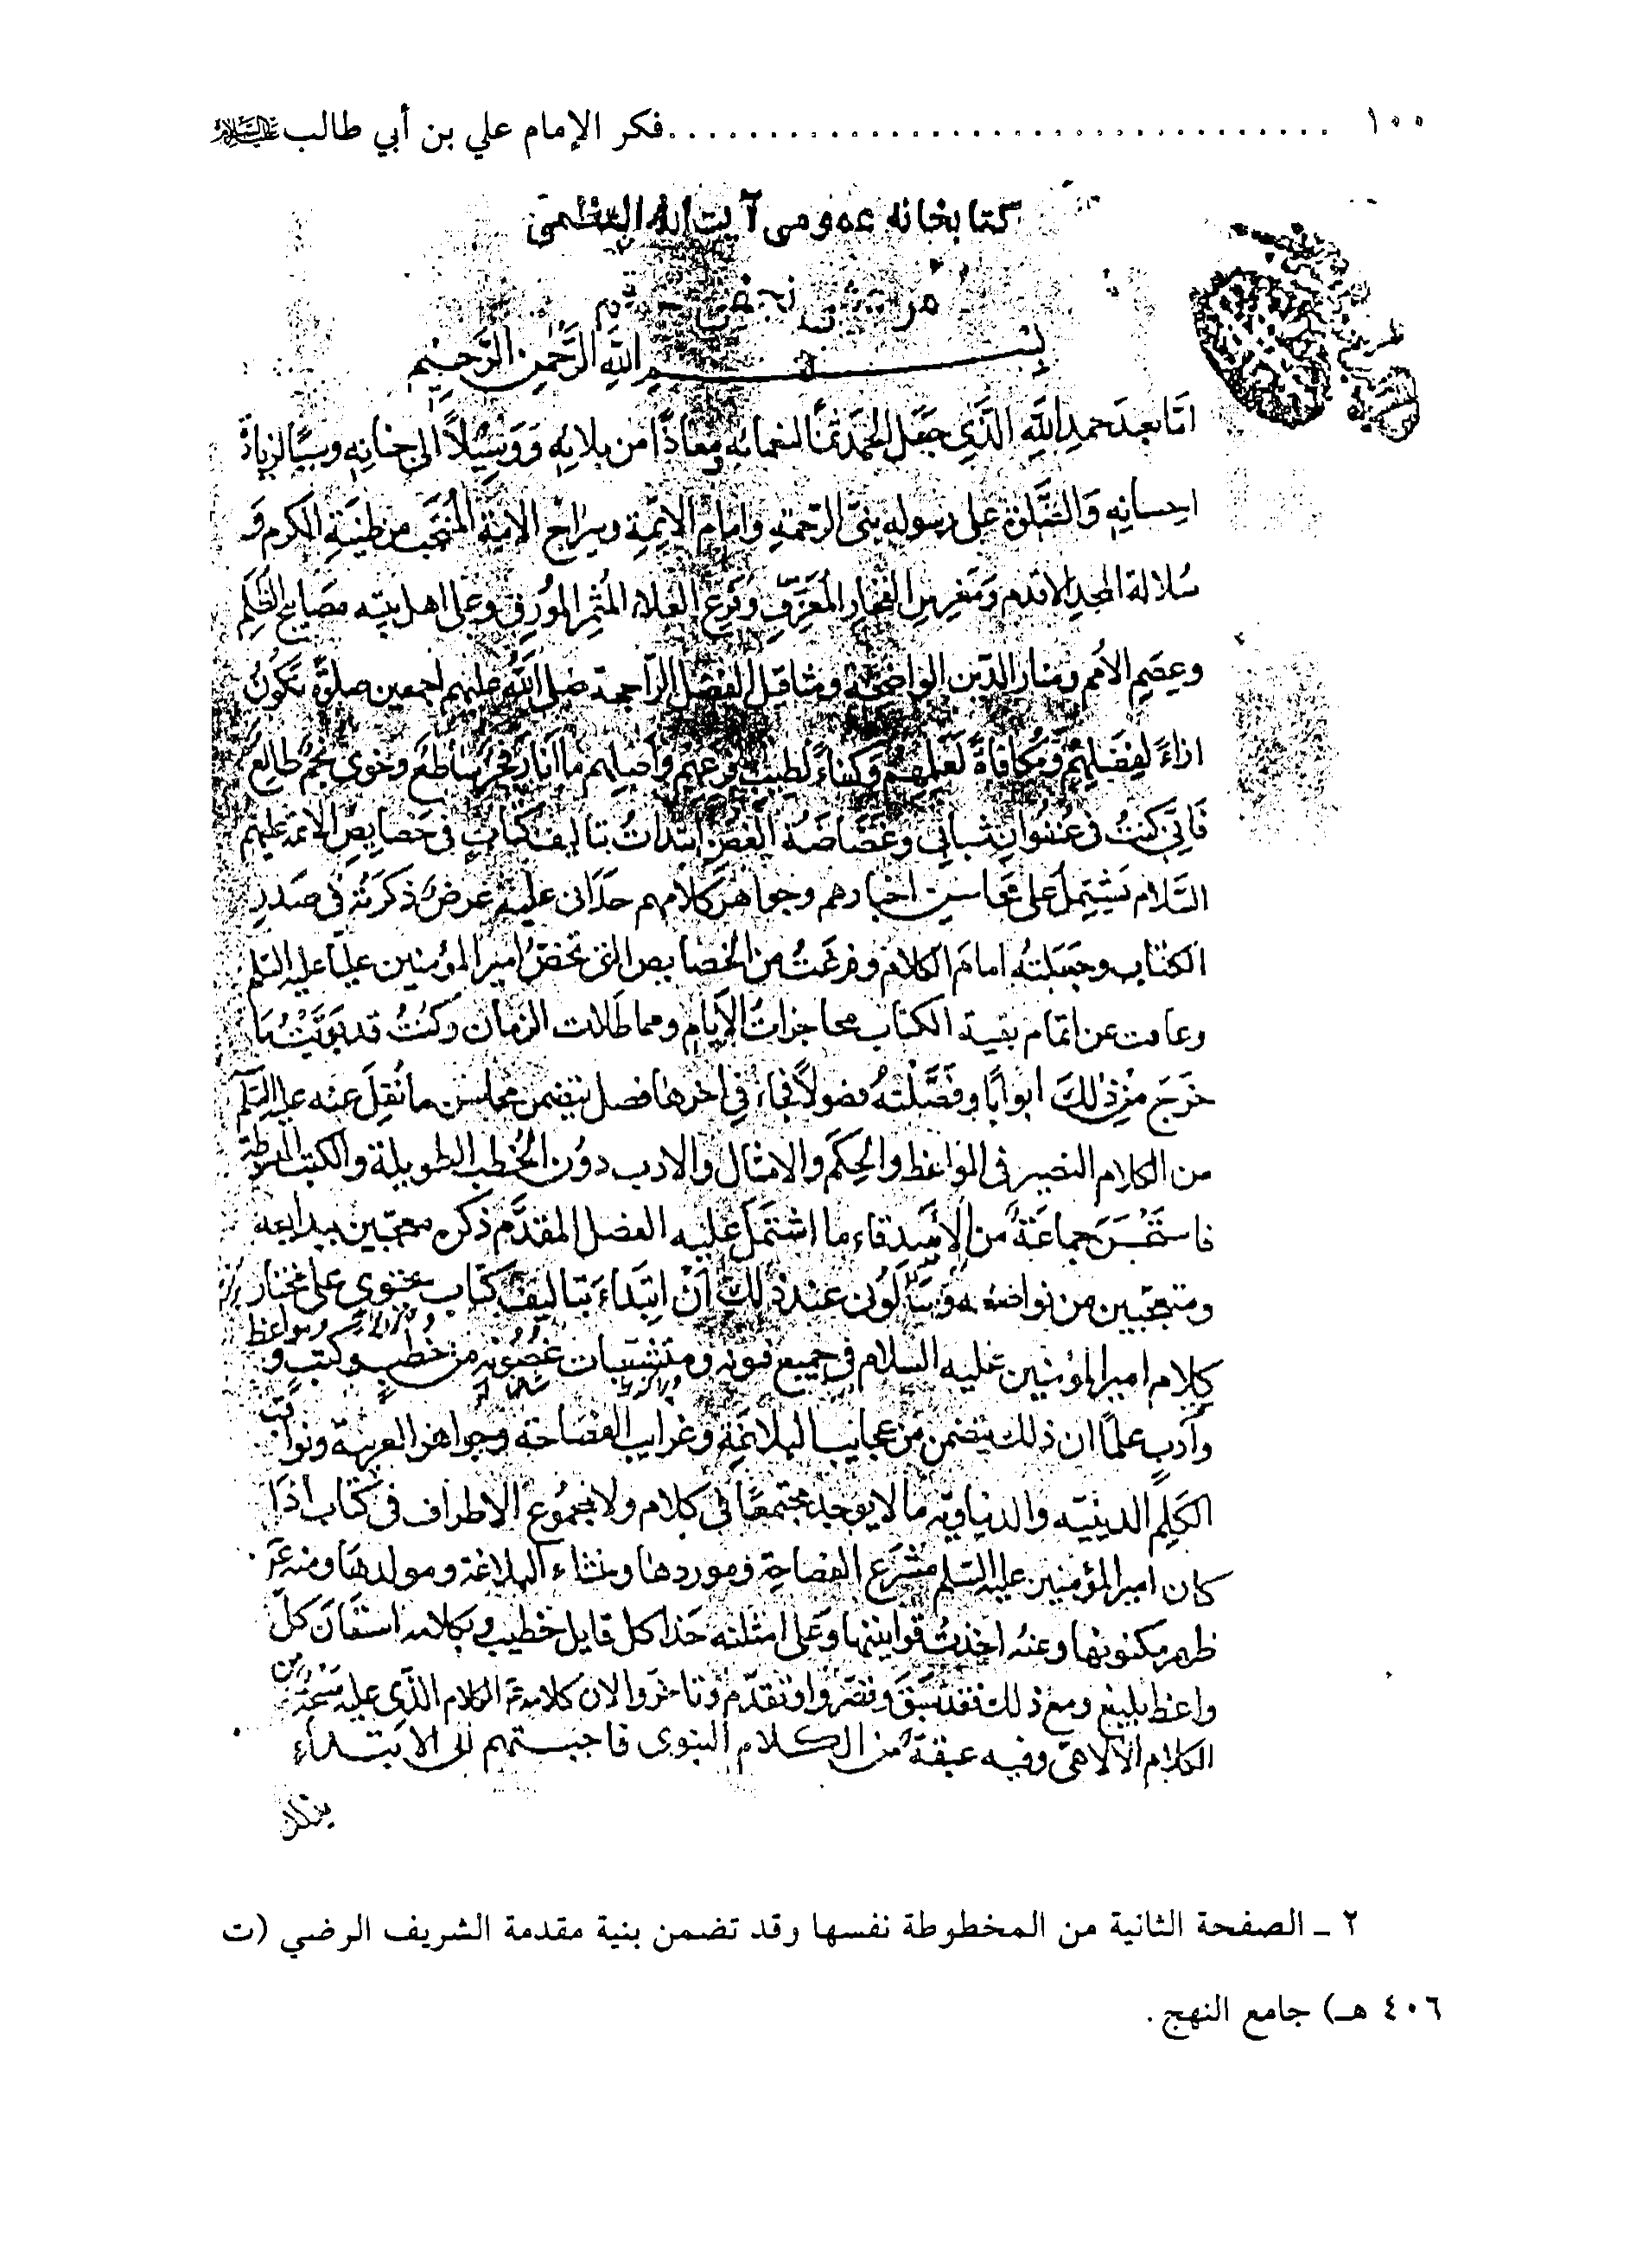 ١٠٠ ................................. فكر الإمام علي بن أبي طالب عليه السلام
كتابخانه عمومى آيت الله العظمى
مرعشى نجفى - قم
بسم الله الرَّحْمنِ الرَّحيمِ
امّا بعد حمدِ اللهِ الّذي جعَل الحمدَ ثمنًا لنعمائه ومعاذًا من بلائه وَوَسيلاً الى جنانِهِ وسببًا لزيادة
احسانِهِ وَالصَّلوة على رسوله نبىّ الرّحمة وامام الايمّة وسراج الامّة المُنتجَب من طينَةِ الكرم وَ
سُلالة المجد الاقدم وَمَغرِسِ الفخار المُعرِقِ وَفَرع العَلاء المُثمِر المُورِق وعلى اهل بيته مصابيح الظُلَمِ
وعِصَمِ الأمم ومنار الدّين الواضحة ومثاقيل الفضل الرّاجحة صلى اللهُ عليهم اجمعين صلوةً تكُونُ
ازاءً لِفَضلِهِم وَمُكافاةً لعَمَلِهِم وَكِفاءً لطيب فرعهم وَأصلِهم ما أنار فجرٌ ساطعٌ وخوى نجمٌ طالِعٌ
فَانّى كنتُ فى عُنفُوان شبابى وغَضَاضَة الغصن ابتدأتُ بتاليف كتابٍ فى خصايص الائمة عليهم
السَّلام يَشتمِلُ على محاسن اخبارهم وجواهر كلامهم حدانى عليه غرضٌ ذكرتهُ فى صَدرِ
الكتاب وجَعلتُه امامَ الكلام وفرغتُ من الخصايص التى تخصُّ امير المؤمنين عليا عليه السلم
وعاقت عن اتمام بقية الكتاب محاجزاتُ الأيام ومماطلات الزمان وكنتُ قد بوّبتُ مَا
خَرَجَ من ذلكَ ابوابًا وفَصَّلتُهُ فصُولاً فجاء فى اخرها فصل يتضمن محاسن ما نُقِلَ عنه عليه السّلم
من الكلام القصير فى المواعظ والحِكَم والامثال والادب دوُن الخُطب الطويلة والكتب المبسوطة
فاستَحْسَنَ جماعَةٌ من الأصدقاء ما اشتمَلَ عليه الفصل المقدَّم ذكره معجبين ببدايعه
ومتعجّبين من نواصعه وسَألُونى عند ذلك أنْ ابتداءَ بتاليف كتاب يحتوى على مختار
كلام امير المؤمنين عليه السلام فى جميع فنونه ومتشعّبات غصُونه من خُطب وكتب و
وأدبٍ علمًا ان ذلك يتضمن من عجايب البلاغة وغرايب الفصاحة وجواهر العربية وثواقب
الكَلِم الدينيّة والدنياوية ما لا يوجد مجتمعًا فى كلام ولا مجموُع الاطراف فى كتاب اذَا
كان امير المؤمنين عليه السّلم مشرَع الفصاحة وموردها ومنشاء البلاغة ومولدها ومنه عَم
ظهر مكنونها وعنهُ اخذت قوانينها وعَلى امثلته حَذا كل قايل خطيب وبكلامه استعَان كلّ
واعظ بليغ ومع ذلك فقد سَبَقَ وقصّروا وتقدّم وتاخّروا لان كلامه عم الكلام الّذى عليه مَسحَة من
الكلام الالاهىّ وفيه عبقة من الكلام النبوى فاجبتهم الى الابتداء
بذلك
٢ ـ الصفحة الثانية من المخطوطة نفسها وقد تضمن بنية مقدمة الشريف الرضي (ت
٤٠٦ هـ) جامع النهج.